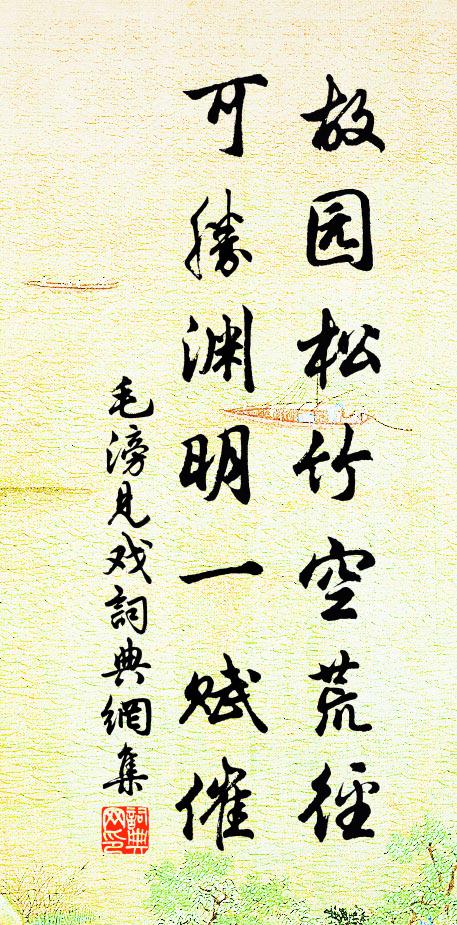 故园松竹空荒径
可胜渊明一赋催
毛滂见戏詞典網集
詞典网印